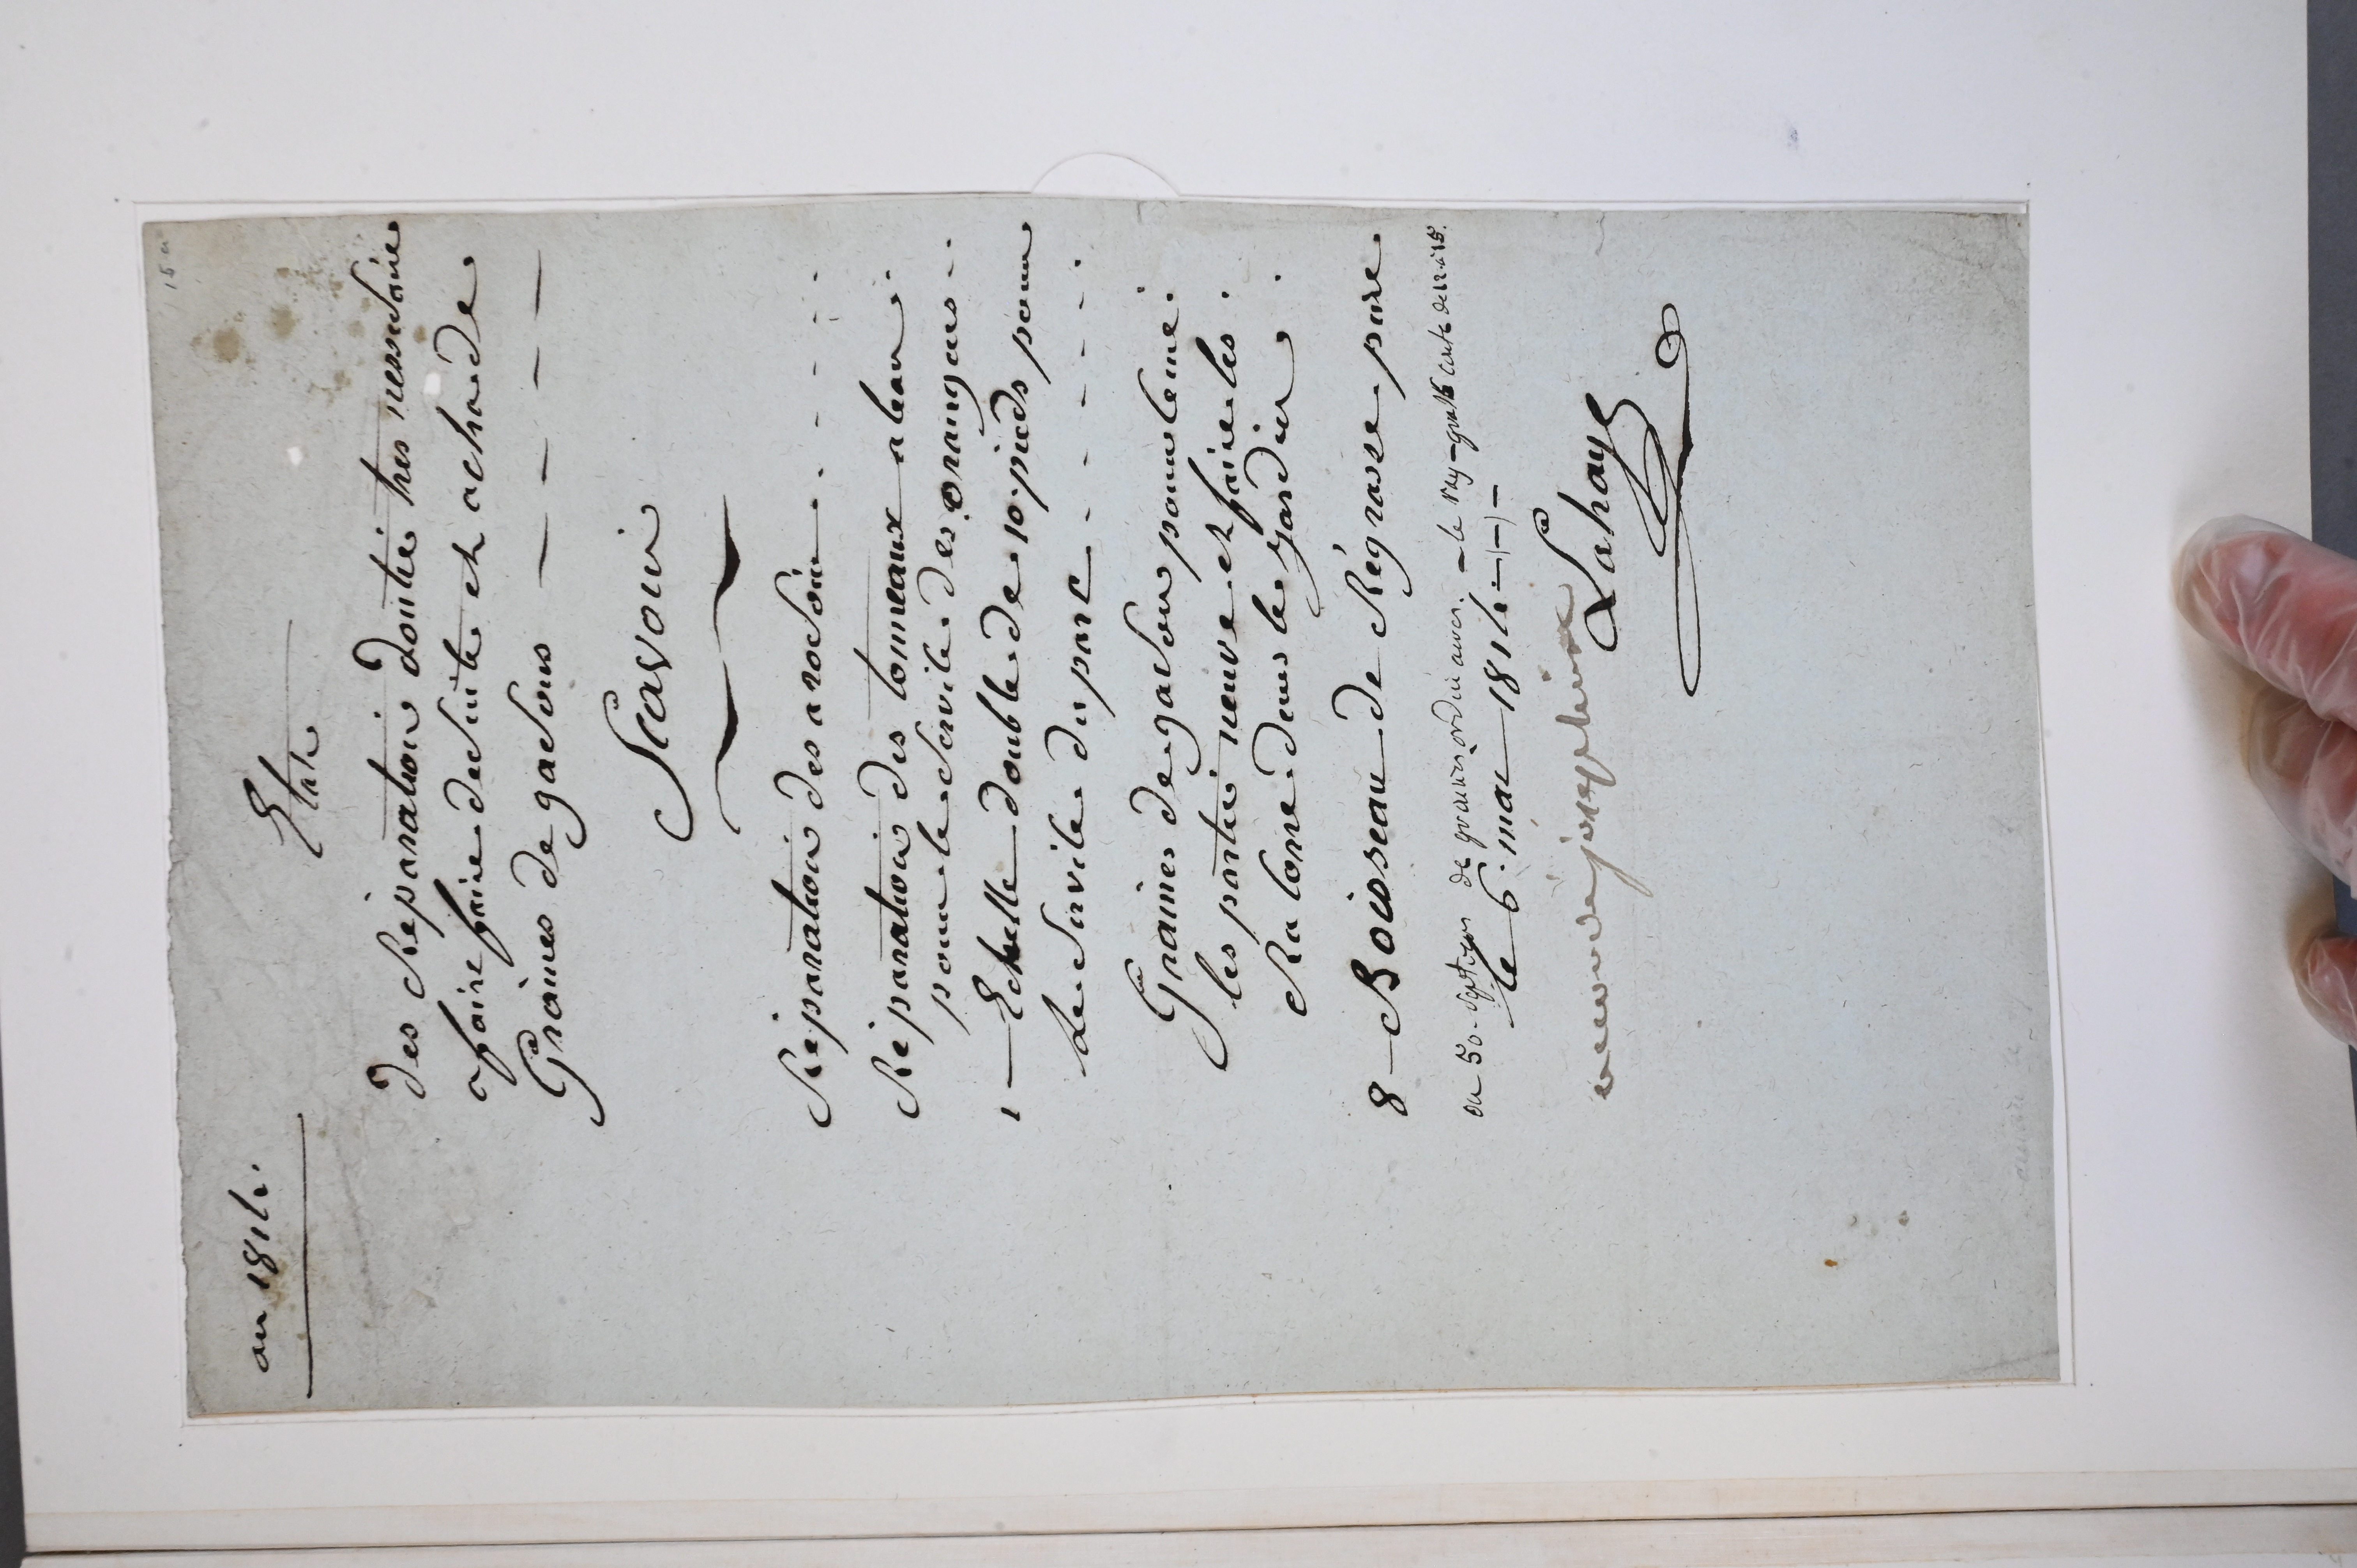 an 1814.
Etat
des Réparation doutie tres nessesaire
afaire faire de suite et achat de
Graines de gasons — — — —
Scavoir
Réparation des arosoir - - - - -
Réparation des tonneaux a leau.
pour le service des orangers -
1 — Echelle double de 10 pieds pour
le service du parc - - - - -
Graines de gason pour semé.
les partie neuve et faire les.
Ra tone dans le jardin.
8 — Boisseau de Régrase pure
de graines ordin
le 6 mai 1814 - - - -
Lahaye
josephine